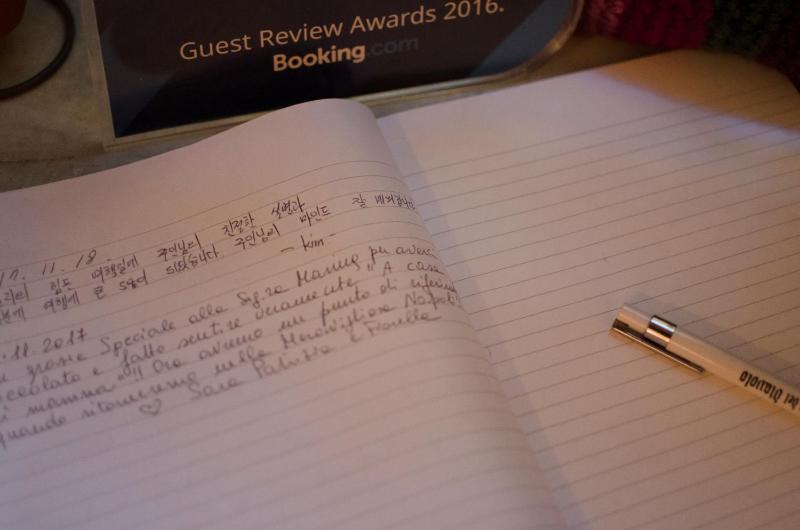 Guest Review Awards 2016.
Booking.com
17. 11. 18.
우리의 힘든 여행길에 주인님의 친절한 설명과
여행에 큰 도움이 되었습니다. 주인님의 마인드 잘 배워갑니다
- kim -
.11.2017
grosse Speciale alla Sig.ra Marina per averci
coccolato e fatto sentire veramente "A casa
di mamma"!! Ora avremo un punto di riferimento
quando ritorneremo nella Meravigliosa Napoli
♡ Sara Patrizia e Fiorella
del Diavolo